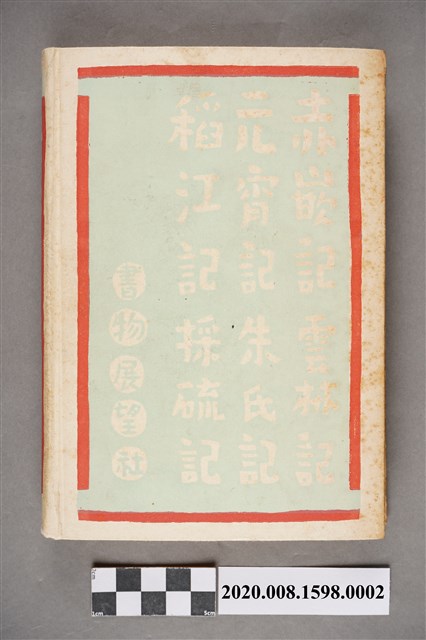 赤嵌記 雲林記
元宵記 朱氏記
稻江記 採硫記
書物展望社
1cm 5cm
2020.008.1598.0002